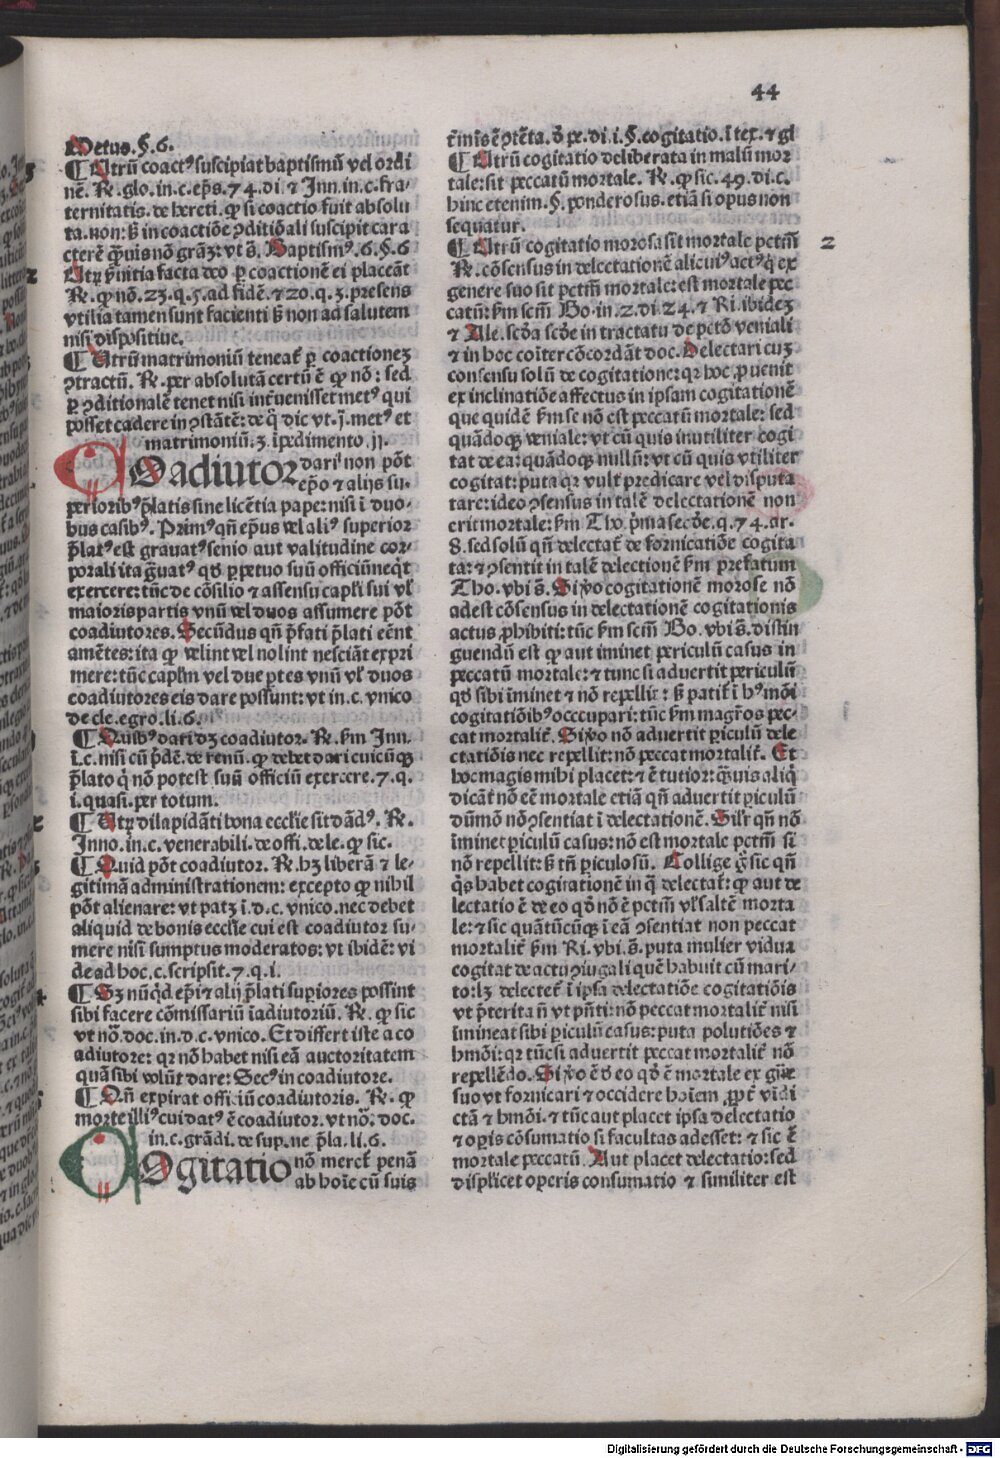 44
Metus.§.6.
¶ Utrũ coactꝰ suscipiat baptismũ vel ordi
nẽ. ℞. glo. in. c. ep̃s. 74. di. ⁊ Inn. in. c. fra-
ternitatis. de hereti. ꝙ si coactio fuit absolu
ta. non: sʒ in coactiõe ꝯditiõali suscipit cara
cterẽ q̃uis nõ grãʒ: vt s̃. Baptismꝰ. 6. §. 6
Utꝝ pñitia facta deo ꝑ coactionẽ ei placeãt
℞. ꝙ nõ. 23. q. 5. ad fidẽ. ⁊ 20. q. 3. presens
vtilia tamen sunt facienti sʒ non ad salutem
nisi dispositiue.
¶ Utrũ matrimoniũ teneat̃ ꝑ coactioneʒ
ꝯtractũ. ℞. per absolutã certũ ẽ ꝙ nõ: sed
ꝑ ꝯditionalẽ tenet nisi intũenisset metꝰ qui
posset cadere in ꝯstãtẽ: de q̃ dic vt. j̃. metꝰ et
matrimoniũ. 3. ĩpedimento. jj.
COadiutor dari non põt
ep̃o ⁊ alijs su-
perioribꝰ p̃latis sine licẽtia pape: nisi ĩ duo-
bus casibꝰ. Primꝰ qñ ep̃us vel aliꝰ superior
p̃latꝰ est grauatꝰ senio aut valitudine cor-
porali ita g̃uatꝰ qd̃ ꝑpetuo suũ officiũ neq̃t
exercere: tũc de cõsilio ⁊ assensu capl̃i sui vl̃
maioris partis vnũ vel duos assumere põt
coadiutores. Secũdus qñ p̃fati p̃lati eẽnt
amẽtes: ita ꝙ velint vel nolint nesciãt expri
mere: tũc capl̃m vel due ꝑtes vnũ vl̃ duos
coadiutores eis dare possunt: vt in. c. vnico
de cle. egro. li. 6.
¶ Quibꝰ dari dʒ coadiutor. ℞. ẜm Inn.
ĩ. c. nisi cũ p̃dẽ. de renũ. ꝙ debet dari cuicũqʒ
p̃lato q̃ nõ potest suũ officiũ exercere. 7. q.
i. quasi. per totum.
¶ Utꝝ dilapidãti bona ecclie sit dãdꝰ. ℞.
Inno. in. c. venerabili. de offi. de le. ꝙ sic.
¶ Quid põt coadiutor. ℞. hʒ liberã ⁊ le-
gitimã administrationem: excepto ꝙ nihil
põt alienare: vt patʒ ĩ. d. c. vnico. nec debet
aliquid de bonis ecclie cui est coadiutor su-
mere nisi sumptus moderatos: vt ibidẽ: vi
de ad hoc. c. scripsit. 7. q. i.
¶ Sʒ nũqd ep̃i ⁊ alij p̃lati supiores possint
sibi facere cõmissariũ ĩ adiutoriũ. ℞. ꝙ sic
vt nõ. doc. in. d. c. vnico. Et differt iste a co
adiutore: qr nõ habet nisi eã auctoritatem
quã sibi volũt dare: Secꝰ in coadiutore.
¶ Qñ expirat officiũ coadiutoris. ℞. ꝙ
morte illiꝰ cui datꝰ ẽ coadiutor. vt nõ. doc.
in. c. grãdi. de sup. ne p̃la. li. 6.
COgitatio nõ meret̃ penã
ab hoĩe cũ suis
t̃mĩs ẽ ꝯtẽta. õ pe. di. i. §. cogitatio. ĩ tex. ⁊ gl
¶ Utrũ cogitatio deliberata in malũ mor
tale: sit peccatũ mortale. ℞. ꝙ sic. 49. di. c.
hinc etenim. §. ponderosus. etiã si opus non
sequatur.
¶ Utrũ cogitatio morosa sit mortale pctm̃ 2
℞. cõsensus in delectationẽ alicuiꝰ actꝰ q̃ ex
genere suo sit pctm̃ mortale: est mortale pec
catũ: ẜm scm̃ Bo. in. 2. di. 24. ⁊ Ri. ibideʒ
⁊ Ale. scd̃a scd̃e in tractatu de pctõ veniali
⁊ in hoc coĩter cõcordãt doc. Delectari cuʒ
consensu solũ de cogitatione: qr hoc ꝓuenit
ex inclinatiõe affectus in ipsam cogitationẽ
que quidẽ ẜm se nõ est peccatũ mortale: sed
quãdoqʒ veniale: vt cũ quis inutiliter cogi
tat de ea: quãdoqʒ nullũ: vt cũ quis vtiliter
cogitat: puta qr vult̃ predicare vel disputa
tare: ideo ꝯsensus in talẽ delectationẽ non
erit mortale: ẜm Tho. p̃ma secõe. q. 74. ar.
8. sed solũ qñ delectat̃ de fornicatiõe cogita
ta: ⁊ ꝯsentit in talẽ delectionẽ ẜm prefatum
Tho. vbi s̃. Si ṽo cogitationẽ morose nõ
adest cõsensus in delectationẽ cogitationis
actus ꝓhibiti: tũc ẜm scm̃ Bo. vbi s̃. distin
guendũ est ꝙ aut iminet periculũ casus in
peccatũ mortale: ⁊ tunc si aduertit periculũ
qd̃ sibi ĩminet ⁊ nõ repellit: sʒ patit̃ ĩ hꝰmõi
cogitatiõibꝰ occcupari: tũc ẜm magr̃os pec-
cat mortalit̃. Si ṽo nõ aduertit ꝑiculũ dele
ctatiõis nec repellit: nõ peccat mortalit̃. Et
hoc magis mihi placet: ⁊ ẽ tutior: q̃uis aliq̃
dicãt nõ eẽ mortale etiã qñ aduertit ꝑiculũ
dũmõ nõ ꝯsentiat ĩ delectationẽ. Silr̃ qñ nõ
ĩminet ꝑiculũ casus: nõ est mortale pctm̃ si
nõ repellit: sʒ tñ ꝑiculosũ. Collige g̃ sic qñ
q̃s habet cogitationẽ in q̃ delectat̃: ꝙ aut de
lectatio ẽ de eo qd̃ nõ ẽ pctm̃ vl̃ saltẽ morta
le: ⁊ sic quãtũcũqʒ ĩ eã ꝯsentiat non peccat
mortalit̃ ẜm Ri. vbi. s̃. puta mulier vidua
cogitat de actu ꝯiugali quẽ habuit cũ mari-
to: lʒ delectet̃ ĩ ipsa delectatiõe cogitatiõis
vt p̃terita ñ vt p̃nti: nõ peccat mortalit̃ nisi
ĩmineat sibi ꝑiculũ casus: puta polutiões ⁊
hmõi: qr tũc si aduertit peccat mortalit̃ nõ
repellẽdo. Si ṽo ẽ õ eo qd̃ ẽ mortale ex gñe
suo vt fornicari ⁊ occidere hoĩem ꝓpt̃ vidi
ctã ⁊ hmõi. ⁊ tũc aut placet ipsa delectatio
⁊ oꝑis cõsumatio si facultas adesset: ⁊ sic ẽ
mortale peccatũ. Aut placet delectatio: sed
displicet operis consumatio ⁊ similiter est
Digitalisierung gefördert durch die Deutsche Forschungsgemeinschaft - DFG